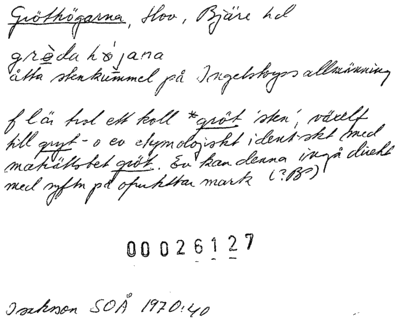 Gröthögarna, Hov, Bjäre hd
grèda hǿjana
åtta stenkummel på Ingelstorps allmänning
f l är trol ett koll *gröt 'sten', växelf
till gryt- o ev etymologiskt ident-skt med
maträttsbet gröt. Ev kan denna ingå direkt
med syftn på ofruktbar mark (?BP)
00026127
Isakson SOÅ 1970:40